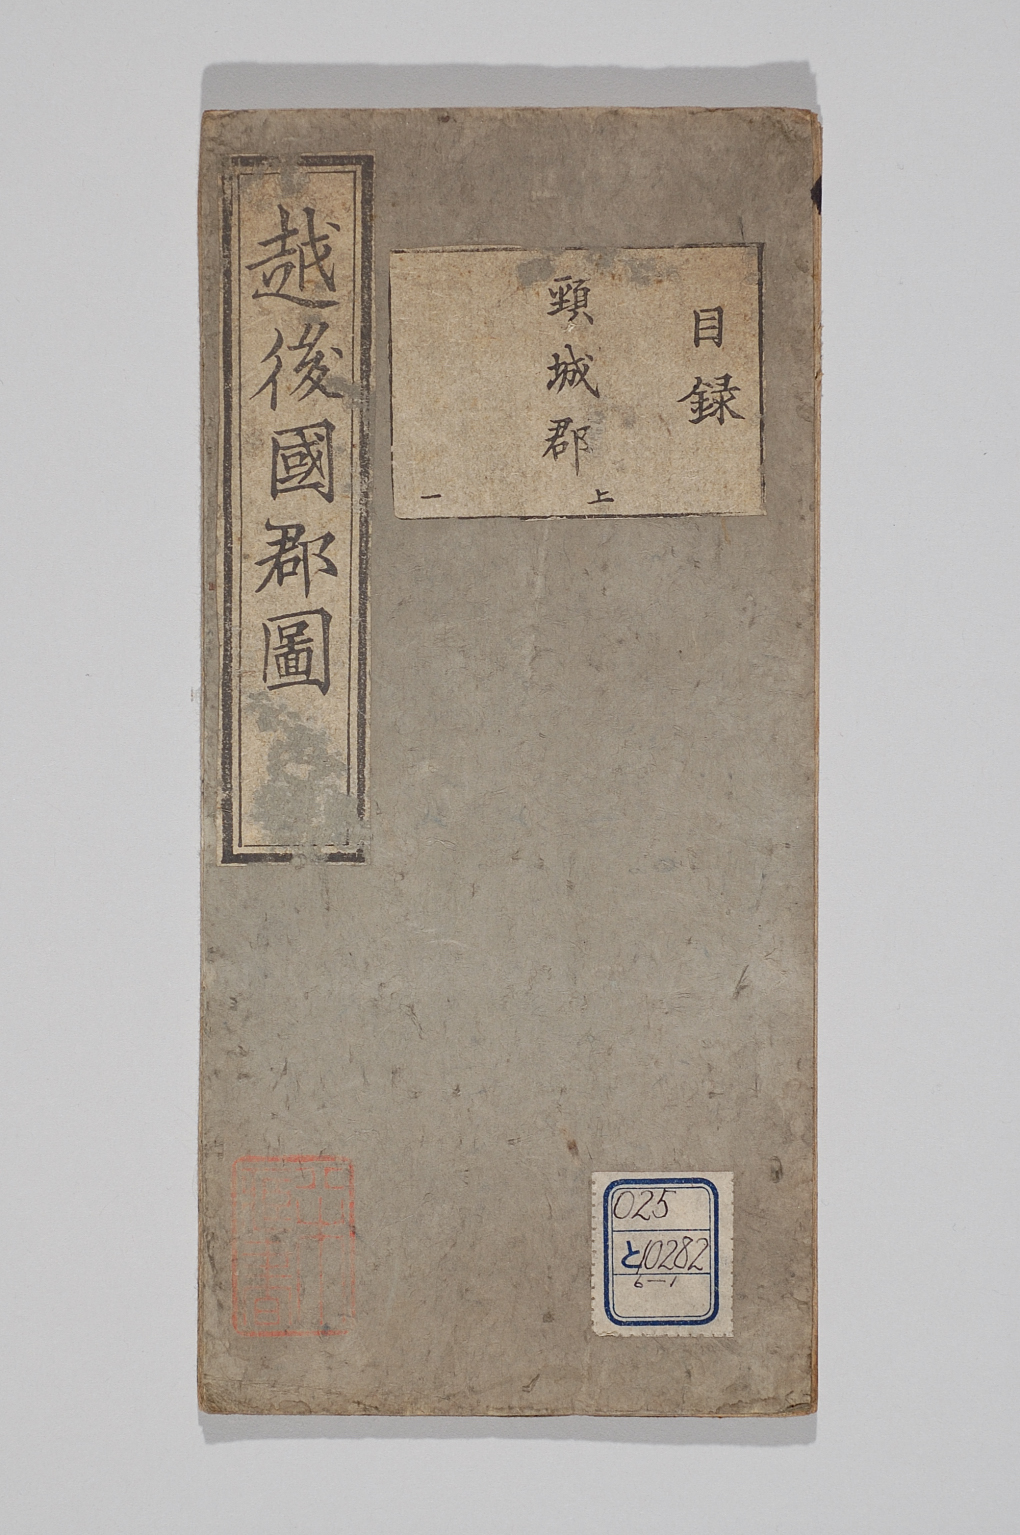 越後國郡圖
目録
頸城郡
上
一
025
と10282
6-1